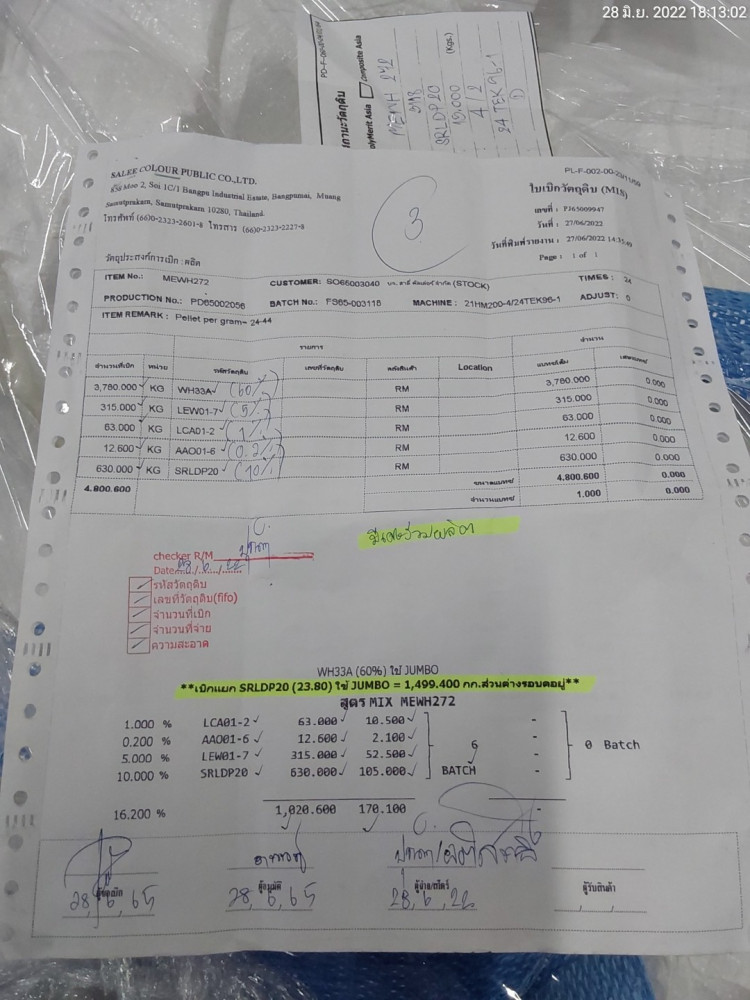 28 มิ.ย. 2022 18:13:02
polyMerit Asia Composite Asia
SRLDP20
(Kgs.)
4/2
24 TEK 96-1
D
SALEE COLOUR PUBLIC CO.,LTD.
Moo 2, Soi 1C/1 Bangpu Industrial Estate, Bangpumai, Muang
Samutprakarn, Samutprakarn 10280, Thailand.
โทรศัพท์ (66)0-2323-2601-8 โทรสาร (66)0-2323-2227-8
3
ใบเบิกวัตถุดิบ (MIS)
เลขที่ : PJ65009947
วันที่ : 27/06/2022
วันที่พิมพ์รายงาน : 27/06/2022
Page : 1 of 1
วัตถุประสงค์การเบิก : ผลิต
ITEM No.: MEWH272 CUSTOMER: SO65003040 (STOCK) TIMES : 24
PRODUCTION No.: PD65002056 BATCH No.: FS65-003118 MACHINE : 21HM200-4/24TEK96-1 ADJUST: 0
ITEM REMARK : Pellet per gram= 24-44
รายการ จำนวน
จำนวนที่เบิก หน่วย รหัสวัตถุดิบ เลขที่วัตถุดิบ คลังสินค้า Location
3,780.000 KG WH33A (60%) RM 3,780.000 0.000
315.000 KG LEW01-7 (5%) RM 315.000 0.000
63.000 KG LCA01-2 (1%) RM 63.000 0.000
12.600 KG AAO01-6 (0.2%) RM 12.600 0.000
630.000 KG SRLDP20 (10%) RM 630.000 0.000
4,800.600 ขนาดแบทช์ 4,800.600 0.000
จำนวนแบทช์ 1.000 0.000
checker R/M
Date 28/6/22
รหัสวัตถุดิบ
เลขที่วัตถุดิบ(fifo)
จำนวนที่เบิก
จำนวนที่จ่าย
ความสะอาด
WH33A (60%) ใช้ JUMBO
**เบิกแยก SRLDP20 (23.80) ใช้ JUMBO = 1,499.400 กก.ส่วนต่างรอบดอยู่**
สูตร MIX MEWH272
1.000 % LCA01-2 63.000 10.500 -
0.200 % AAO01-6 12.600 2.100 6 - 0 Batch
5.000 % LEW01-7 315.000 52.500 -
10.000 % SRLDP20 630.000 105.000 BATCH -
16.200 % 1,020.600 170.100 -
ผู้อนุมัติ ผู้รับสินค้า
28, 6, 65 28, 6, 65 28, 6, 22